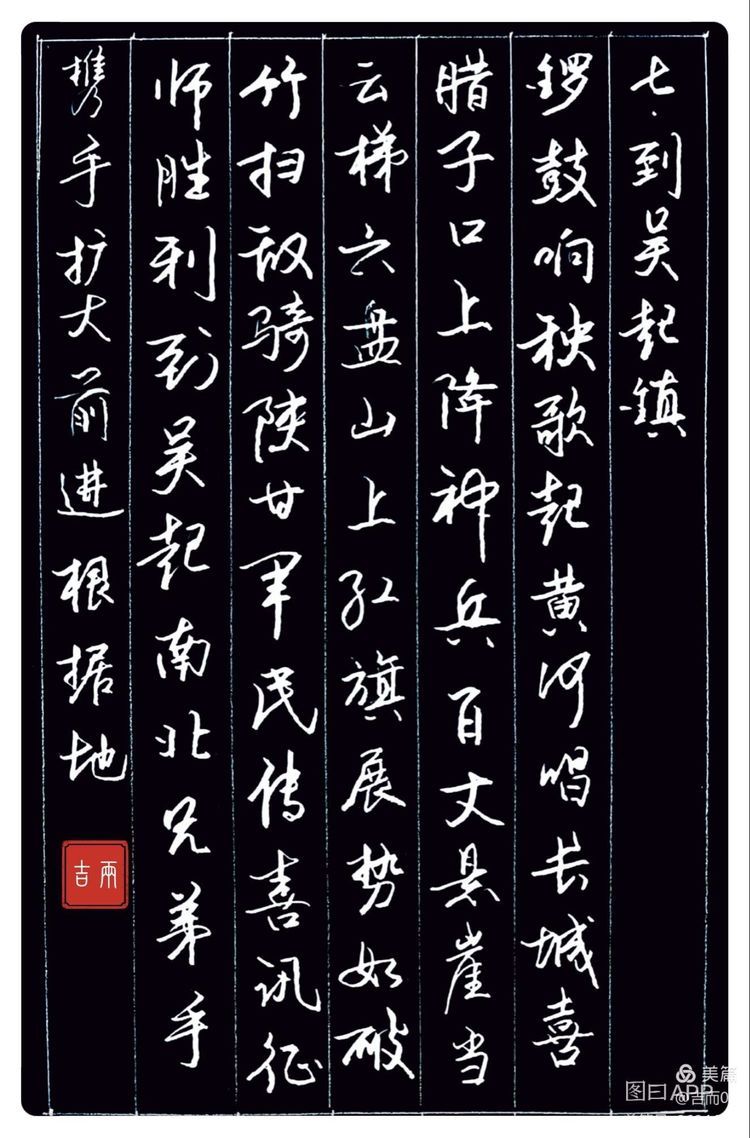 七·到吴起镇
锣鼓响秧歌起黄河唱长城喜
腊子口上降神兵百丈悬崖当
云梯六盘山上红旗展势如破
竹扫敌骑陕甘军民传喜讯征
师胜利到吴起南北兄弟手
携手扩大前进根据地
雨吉
美篇
图曰APP